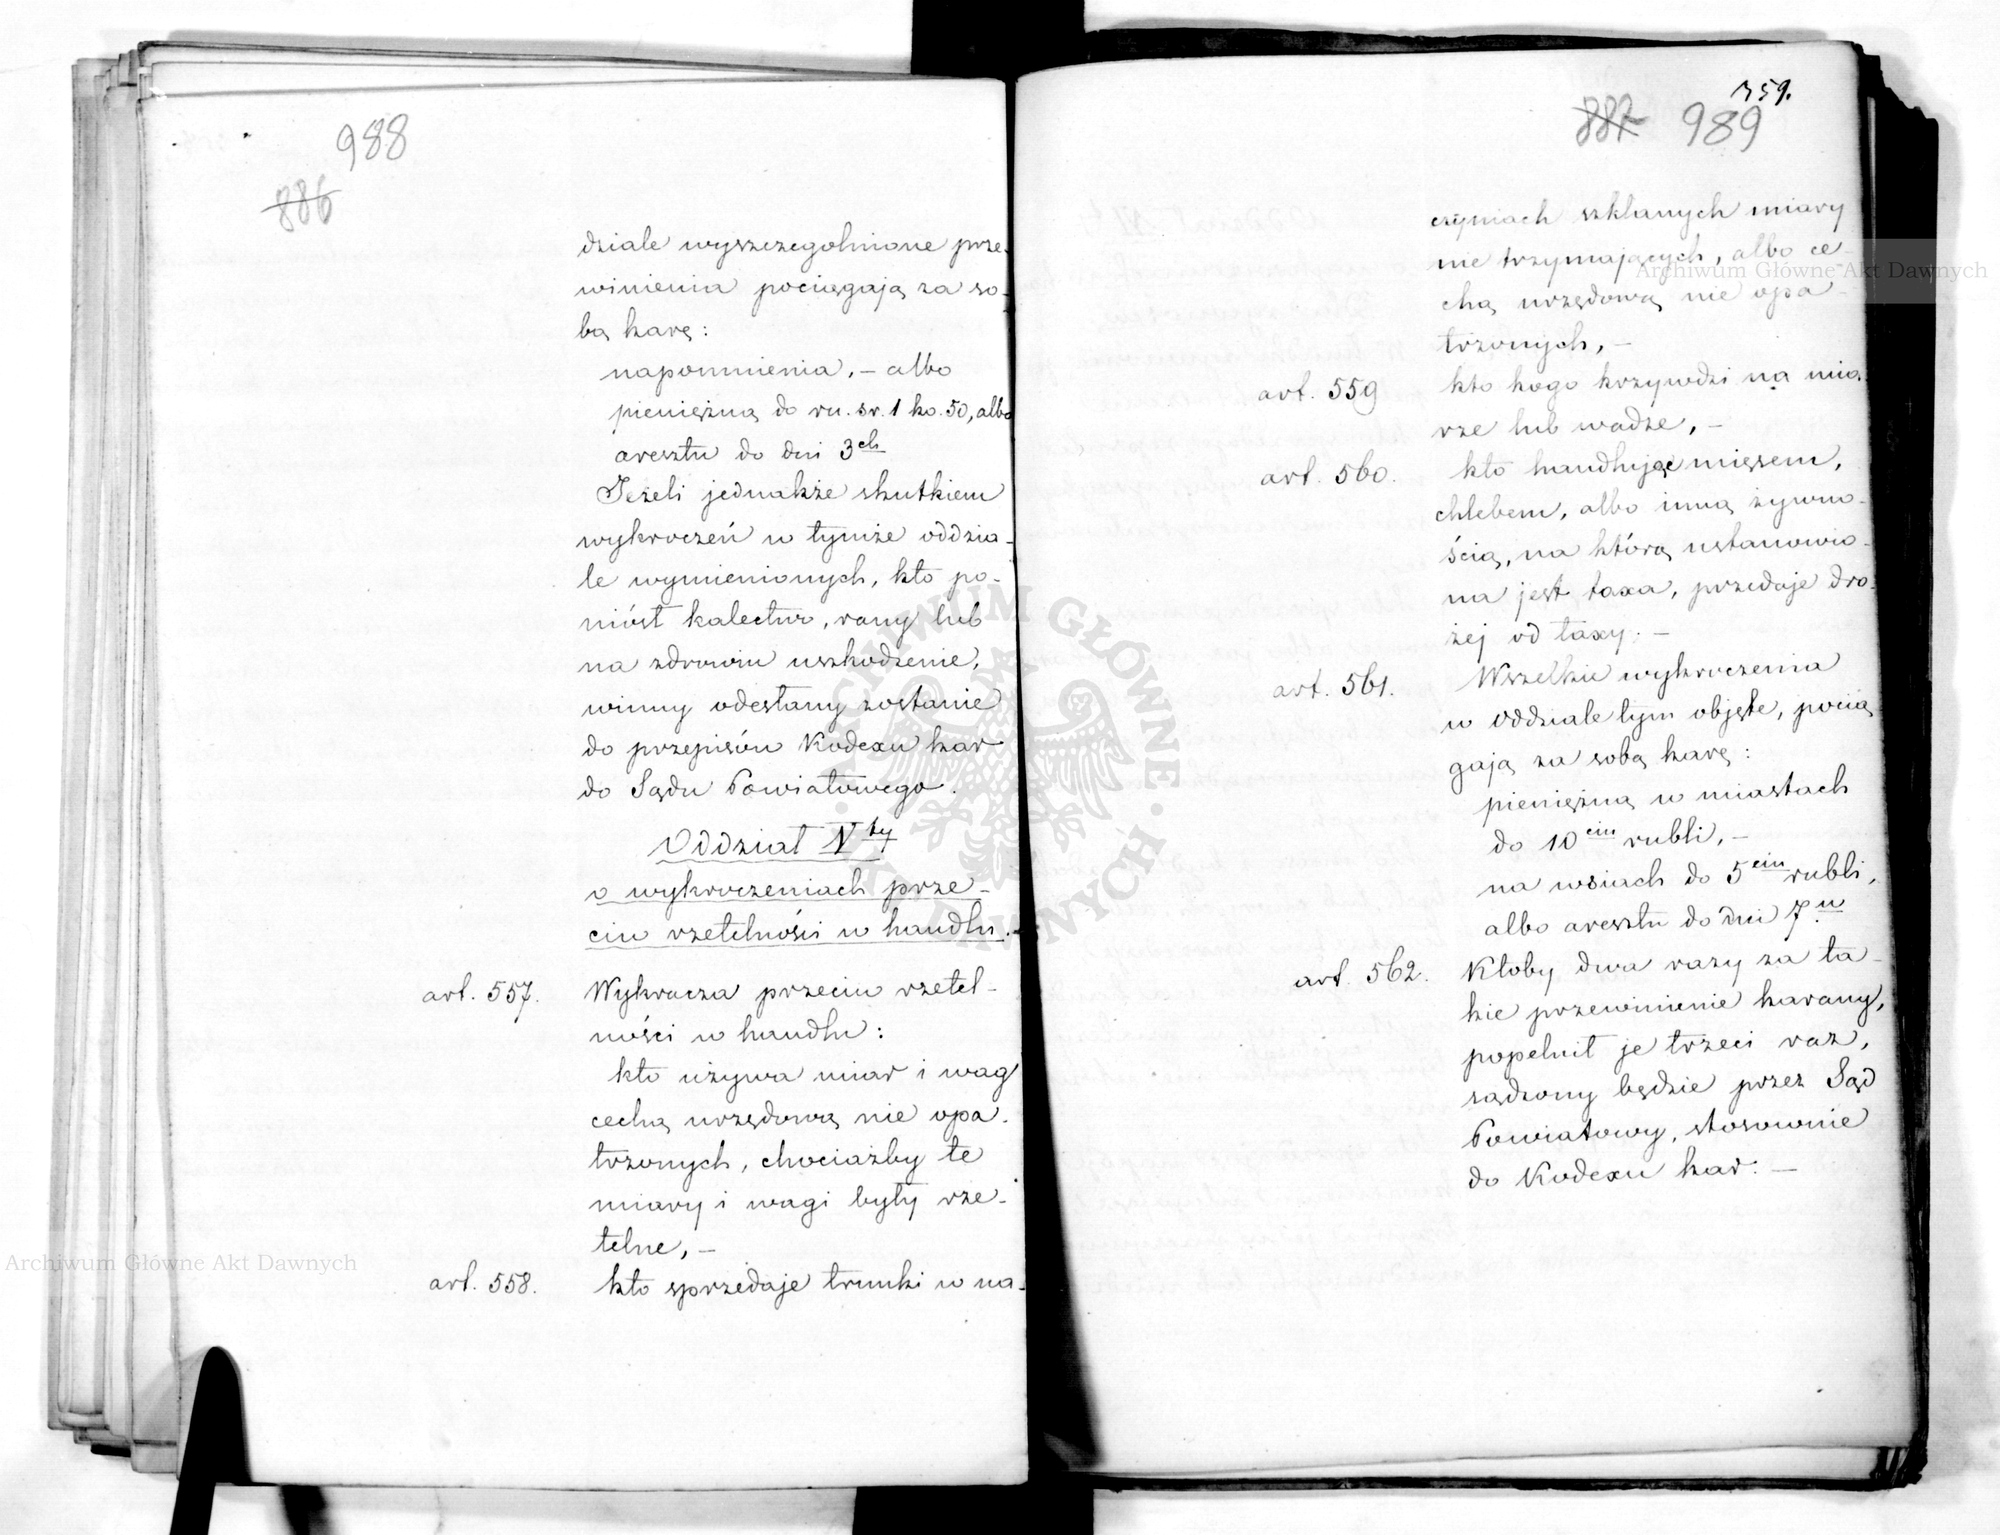 988
886
dziale wyszczegolnione prze-
winienia pociągają za so-
bą karę:
napomnienia, – albo
pieniężną do ru. sr. 1 ko. 50, albo
aresztu do dni 3ch
Jeżeli jednakże skutkiem
wykroczeń w tymże oddzia-
le wymienionych, kto po-
niósł kalectwo, rany lub
na zdrowiu uszkodzenie,
winny odesłany zostanie
do przepisów Kodexu kar
do Sądu Powiatowego.
Oddział Vty
o wykroczeniach prze-
ciw rzetelności w handlu.
art. 557. Wykracza przeciw rzetel-
ności w handlu:
kto używa miar i wag
cechą urzędową nie opa-
trzonych, chociażby te
miary i wagi były rze-
telne, –
art. 558. kto sprzedaje trunki w na-
359.
887 989
czyniach szklanych miary
nie trzymających, albo ce-
chą urzędową nie opa-
trzonych, –
art. 559 kto kogo krzywdzi na mia-
rze lub wadze, –
art. 560. kto handlując mięsem,
chlebem, albo inną żywno-
ścią, na którą ustanowio-
na jest taxa, przedaje dro-
żej od taxy. –
art. 561. Wszelkie wykroczenia
w oddziale tym objęte, pocią-
gają za sobą karę:
pieniężną w miastach
do 10ciu rubli, –
na wsiach do 5ciu rubli,
albo aresztu do dni 7u
art. 562. Ktoby dwa razy za ta-
kie przewinienie karany,
popełnił je trzeci raz,
sądzony będzie przez Sąd
Powiatowy, stosownie
do Kodexu kar. –
Archiwum Główne Akt Dawnych
Archiwum Główne Akt Dawnych
ARCHIWUM GŁÓWNE AKT DAWNYCH